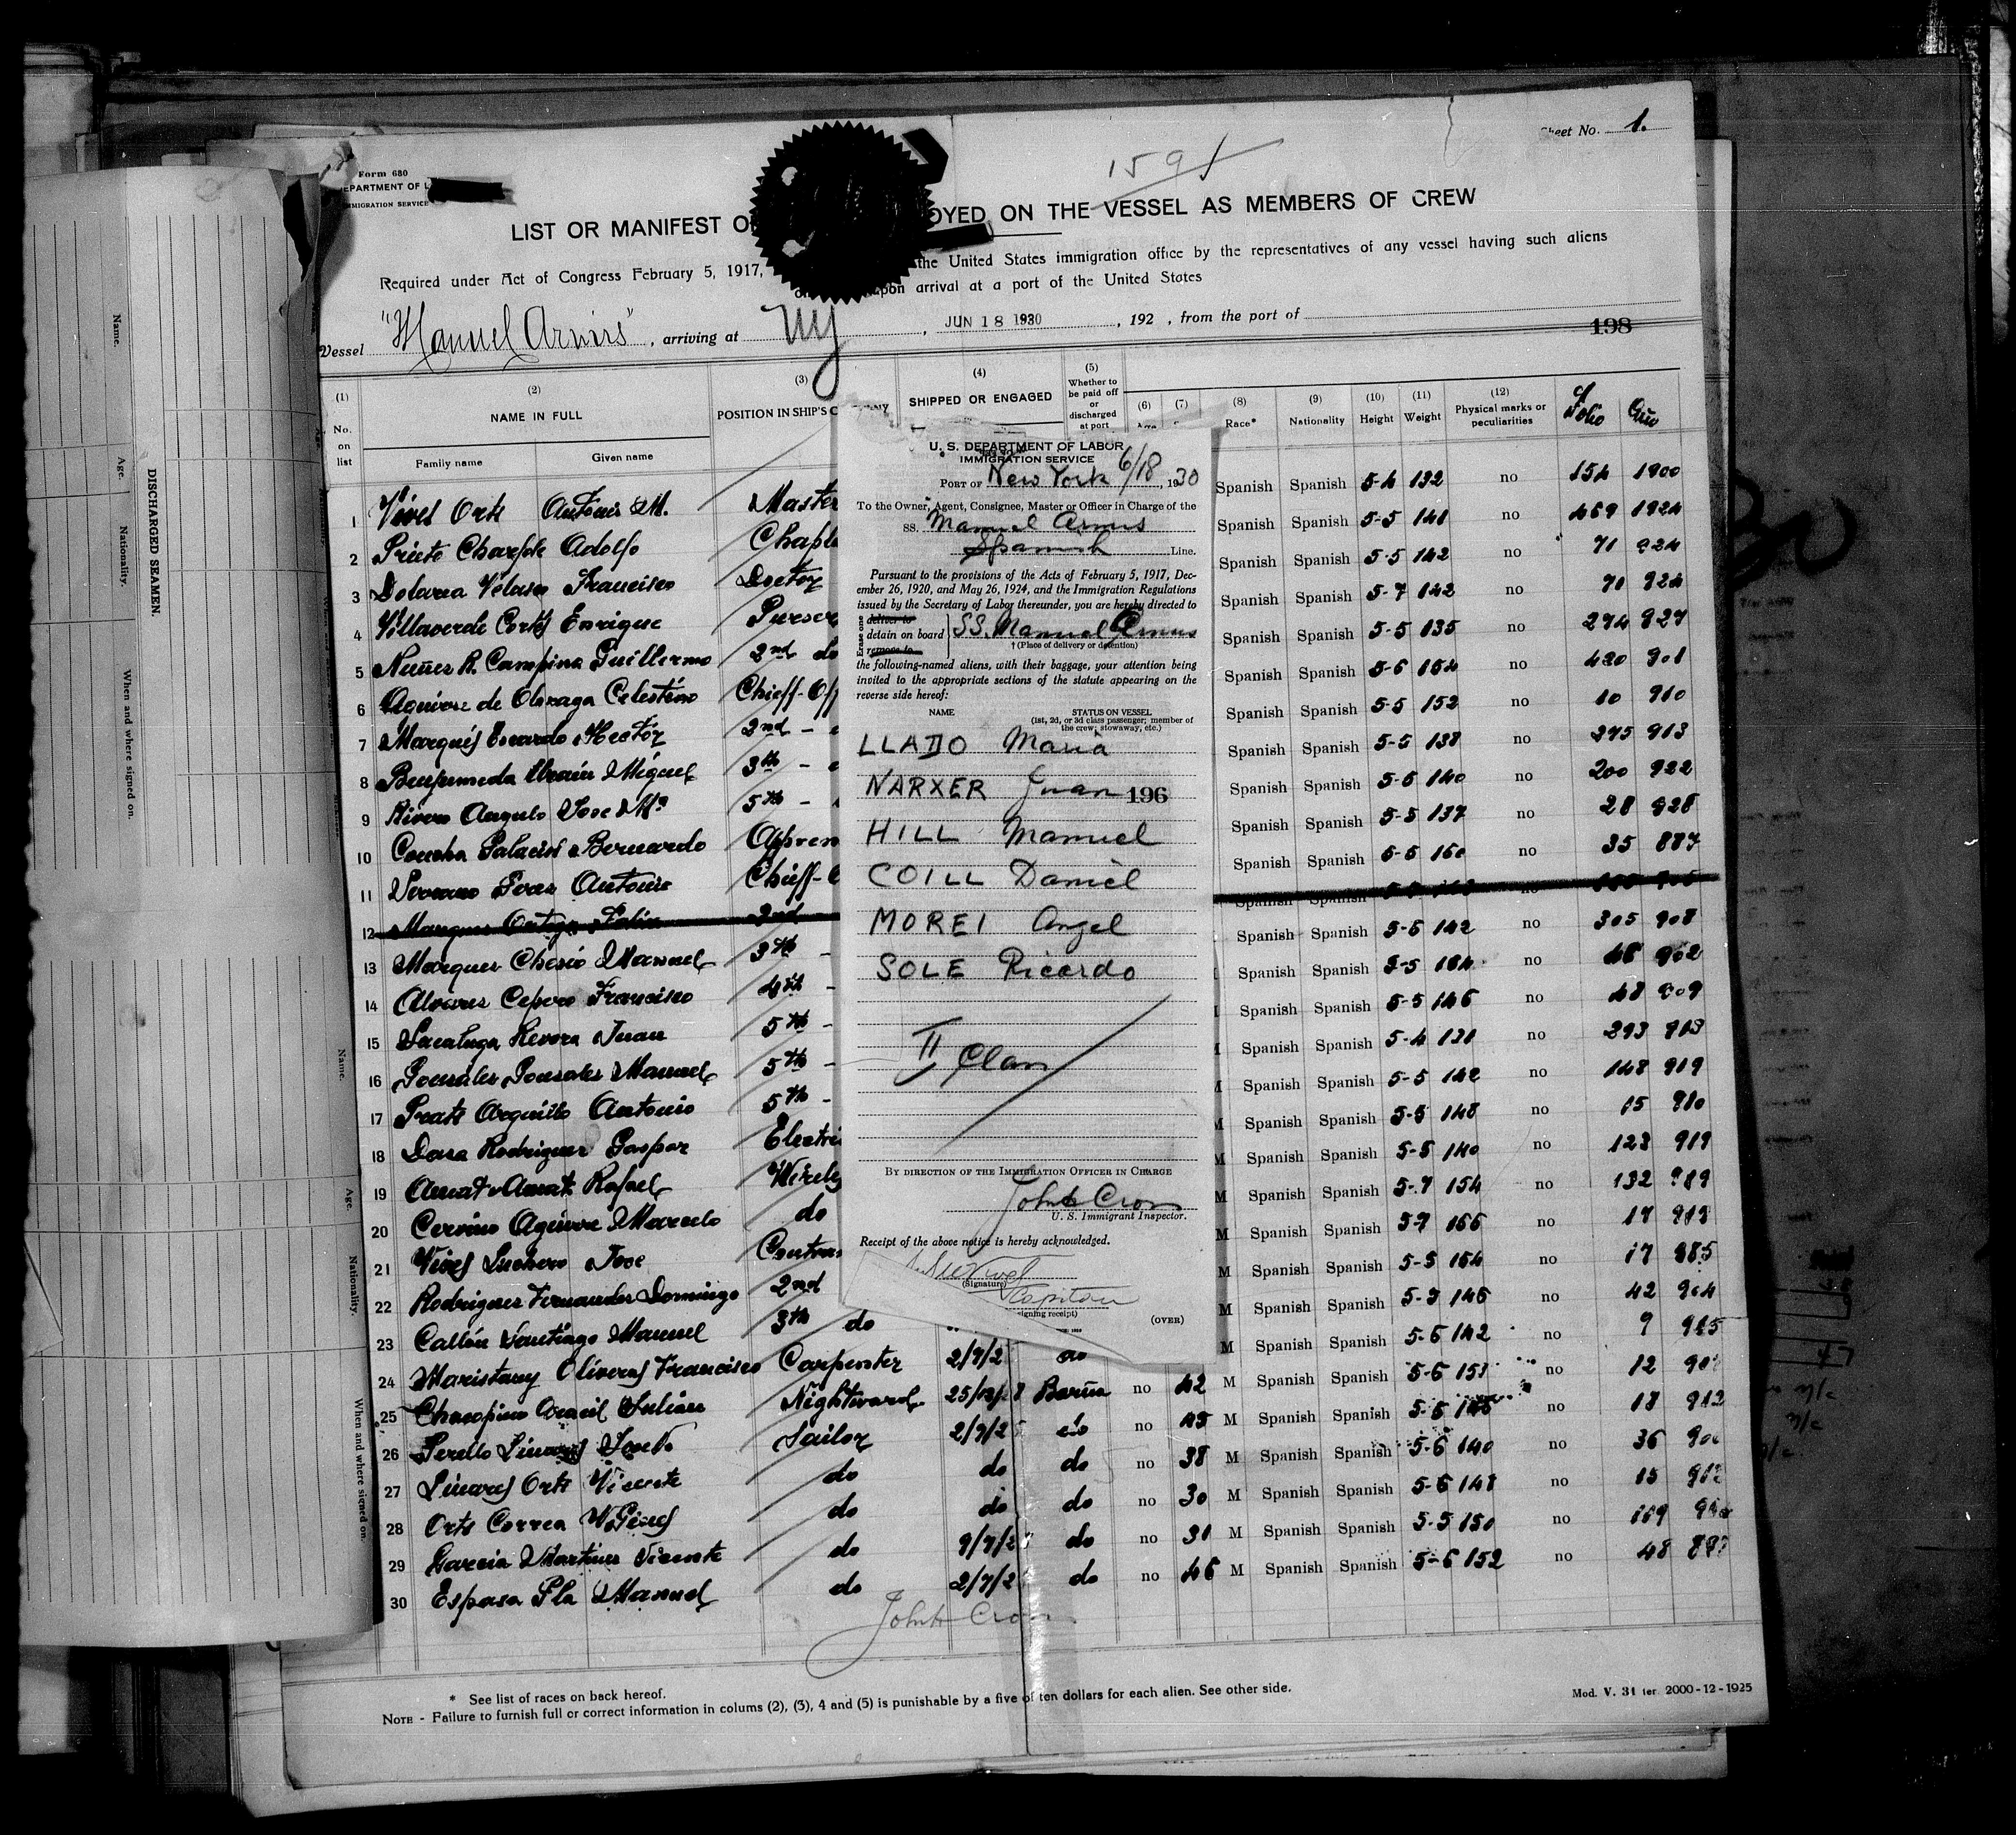 Sheet No. 1.
159
Form 680
DEPARTMENT OF L
IMMIGRATION SERVICE
LIST OR MANIFEST O OYED ON THE VESSEL AS MEMBERS OF CREW
Required under Act of Congress February 5, 1917, the United States immigration office by the representatives of any vessel having such aliens
upon arrival at a port of the United States
Vessel "Manuel Arnús", arriving at NY, JUN 18 1930, 192 , from the port of
198
(1) (2) (3) (4) (5) (6) (7) (8) (9) (10) (11) (12)
No. on list NAME IN FULL POSITION IN SHIP'S C SHIPPED OR ENGAGED Whether to be paid off or discharged at port Race* Nationality Height Weight Physical marks or peculiarities Folio
Family name Given name
1 Vives Orts Antonio M. Master Spanish Spanish 5-4 132 no 154 1900
2 Prieto Adolfo Chapl Spanish Spanish 5-5 141 no 469 1924
3 Francisco Doctor Spanish Spanish 5-5 142 no 71 924
4 Villaverde Cortés Enrique Purser Spanish Spanish 5-7 142 no 71 924
5 Nuñez R. Campina Guillermo 2nd do Spanish Spanish 5-5 135 no 274 927
6 Aguirre de Olozaga Celestino Chieff-Off Spanish Spanish 5-6 154 no 420 901
7 Marqués Escardo Hector 2nd - Spanish Spanish 5-5 152 no 10 910
8 Miguel 3th - Spanish Spanish 5-5 138 no 275 913
9 Rivero Angulo Jose Mª 5th - Spanish Spanish 5-5 140 no 200 922
10 Concha Palacios Bernardo Appren Spanish Spanish 5-5 137 no 28 928
11 Serrano Antonio Chieff- Spanish Spanish 5-5 150 no 35 887
12 Marques Ortega 2nd Spanish Spanish no
13 Marques Manuel 3th - Spanish Spanish 5-5 142 no 305 908
14 Alvarez Cepero Francisco 4th - Spanish Spanish 5-5 164 no 48 902
15 Sacaluga Revora Juan 5th - Spanish Spanish 5-5 146 no 48 909
16 Gonzalez Gonzalez Manuel 5th - Spanish Spanish 5-4 131 no 293 913
17 Prats Arguillo Antonio 5th - Spanish Spanish 5-5 142 no 148 919
18 Rodriguez Gaspar Electri M Spanish Spanish 5-5 148 no 15 910
19 Amat Amat Rafael Wirele M Spanish Spanish 5-5 140 no 123 919
20 Cervino Aguirre Marcelo do M Spanish Spanish 5-7 154 no 132 919
21 Vives Jose Contra M Spanish Spanish 5-7 166 no 17 919
22 Rodriguez Fernandez Domingo 2nd M Spanish Spanish 5-5 164 no 17 885
23 Callón Santiago Manuel 3th do M Spanish Spanish 5-5 146 no 42 904
24 Maristany Oliveras Francisco Carpenter 2/7/2 do M Spanish Spanish 5-6 142 no 9 915
25 Julian Nightward. 25/12/28 Barna no 42 M Spanish Spanish 5-6 153 no 12
26 Perello Linares 
Sailor 2/7/2 do no 45 M Spanish Spanish no 18 912
27 Linares Orts Vicente do do do no 38 M Spanish Spanish 5-6 140 no 36
28 Orts Correa do do do no 30 M Spanish Spanish 5-6 148 no 15 912
29 Garcia Martinez Vicente do 9/7/2 do no 31 M Spanish Spanish 5-5 150 no 169
30 Espasa Pla Manuel do 2/7/2 do no 46 M Spanish Spanish 5-6 152 no 48
John Cron
* See list of races on back hereof.
NOTE - Failure to furnish full or correct information in colums (2), (3), 4 and (5) is punishable by a five of ten dollars for each alien. See other side.
Mod. V. 31 ter. 2000-12-1925
U. S. DEPARTMENT OF LABOR
IMMIGRATION SERVICE
PORT OF New York 6/18, 1930
To the Owner, Agent, Consignee, Master or Officer in Charge of the
SS. Manuel Arnus
Spanish Line.
Pursuant to the provisions of the Acts of February 5, 1917, Dec-
ember 26, 1920, and May 26, 1924, and the Immigration Regulations
issued by the Secretary of Labor thereunder, you are hereby directed to
Erase one
deliver to
detain on board SS. Manuel Arnus
remove to
†(Place of delivery or detention)
the following-named aliens, with their baggage, your attention being
invited to the appropriate sections of the statute appearing on the
reverse side hereof:
NAME STATUS ON VESSEL
(1st, 2d, or 3d class passenger; member of
the crew; stowaway, etc.)
LLADO Maria
NARXER Juan 196
HILL Manuel
COILL Daniel
MOREI Angel
SOLE Ricardo
II Class
BY DIRECTION OF THE IMMIGRATION OFFICER IN CHARGE
John Cron
U. S. Immigrant Inspector.
Receipt of the above notice is hereby acknowledged.
(Signature)
Capitan
signing receipt)
(OVER)
DISCHARGED SEAMEN.
Name.
Age.
Nationality.
When and where signed on.
Name.
Age.
Nationality.
When and where signed on.